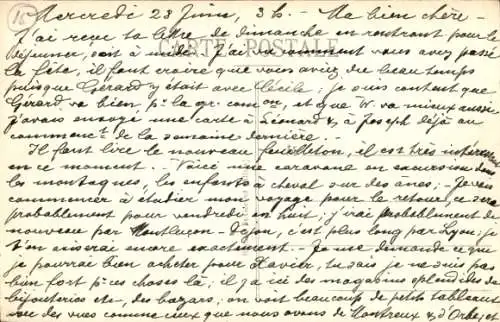 15
Mercredi 23 Juin, 3 h. – Ma bien chère –
J'ai reçu ta lettre de dimanche en rentrant pour le
CARTE POSTALE
déjeuner, soit à midi. J'ai vu comment vous avez passé
la fête, il faut croire que vous aviez du beau temps
puisque Gérard y était avec Cécile; je suis content que
Gérard va bien, pr la gr. comon, et que W. va mieux aussi
j'avais envoyé une carte à Léonard & à Joseph déjà au
commenct de la semaine dernière. –
Il faut lire le nouveau feuilleton, il est très intéress
en ce moment. Voici une caravane en excursion dans
les montagnes, les enfants à cheval sur des ânes. – Je vais
commencer à étudier mon voyage pour le retour, ce sera
probablement pour vendredi en huit; j'irai probablement de
nouveau par Montluçon - Dijon, c'est plus long par Lyon; je
t'en aviserai encore exactement. – Je me demande ce que
je pourrai bien acheter pour Xavier, tu sais je ne suis pas
bien fort pr ces choses là; il y a ici des magasins splendides de
bijouteries etc, des bazars; on voit beaucoup de petits tableaux
avec des vues comme ceux que nous avons de Montreux & d'Orbey, et